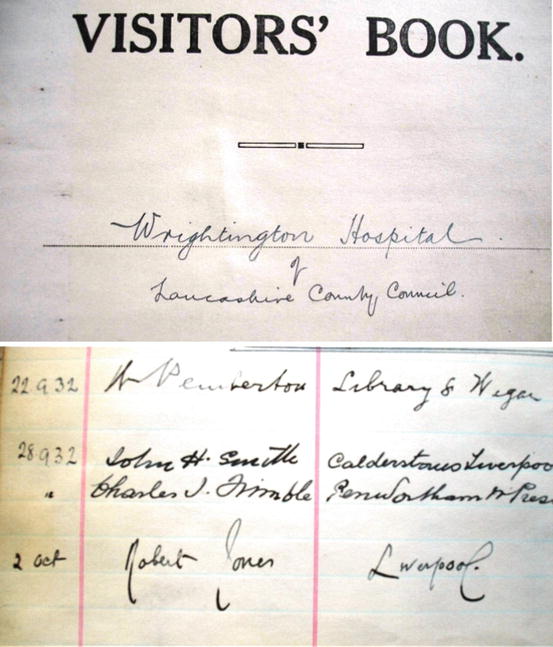 VISITORS' BOOK.
Wrightington Hospital
of
Lancashire County Council.
22 9 32 W Pemberton Library & Wigan
28 9 32 John H. Smith Calderstones Liverpoo
" Charles J. Trimble Penwortham Nr Pres
2 Oct Robert Jones Liverpool.